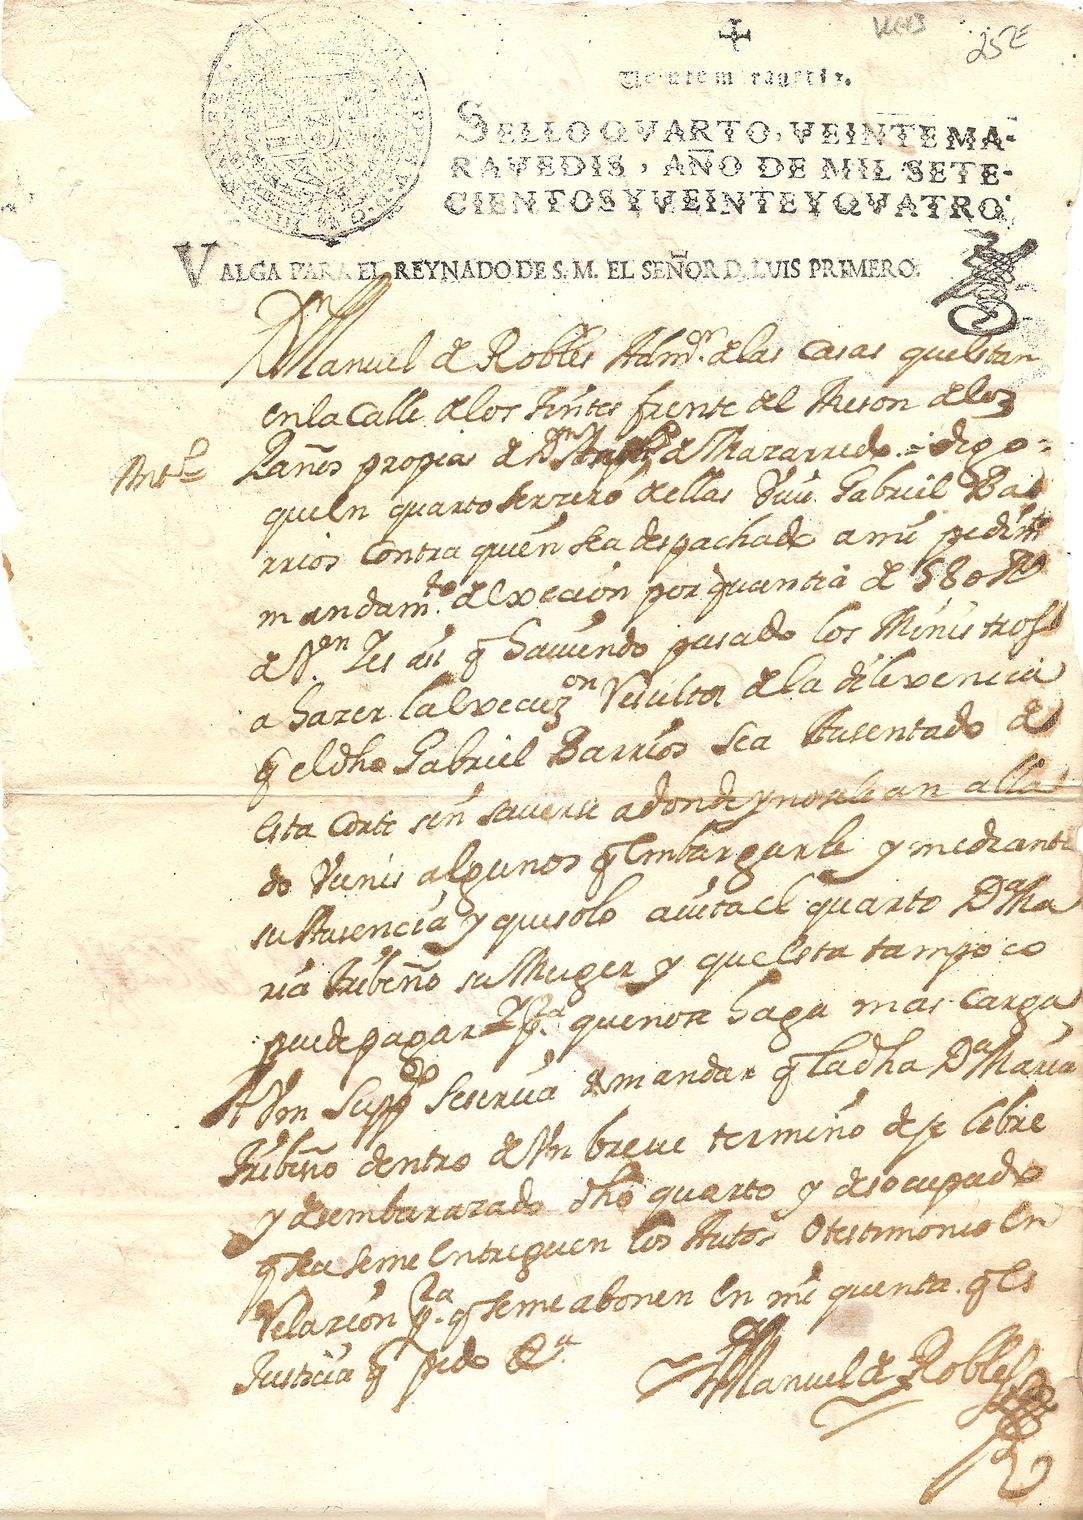 25E
Veinte maravedis.
SELLO QVARTO, VEINTE MA-
RAVEDIS, AÑO DE MIL SETE-
CIENTOS Y VEINTE Y QVATRO.
VALGA PARA EL REYNADO DE S. M. EL SEÑOR D. LUIS PRIMERO.
Dn Manuel de Robles Admor. de las Casas que estan
en la Calle de los Tintes frente del Meson de los
Paños propias de Dn de Mazarredo = digo =
que en quarto terzero de ellas Viue Gabriel Ba
rrios contra quien sea despachado a mi pedimto
mandamto. de execion por quantia de 580 Rs
de Vn. y es asi q hauiendo pasado los Ministros
a hazer la execuzon Resulta de la dilixencia
q el dho Gabriel Barrios sea Ausentado de
esta Corte sin sauerse adonde y nosele an alla
do Vienes algunos q embargarle y mediante
su Ausencia y que solo auita el quarto Da Ma
ria Triviño su Muger y que esta tampoco
puede pagar y pa. que no se haga mas Carga
A Vm Suppco se sirua de mandar q la dha Da Maria
Triviño dentro de Vn breue termino deje libre
y desembarazado dho quarto y desocupado
q sea se me entreguen los Autos o testimonio en
Relazion pa. q se me abonen en mi quenta. q es
Justicia q pido &a.
Manuel de Robles